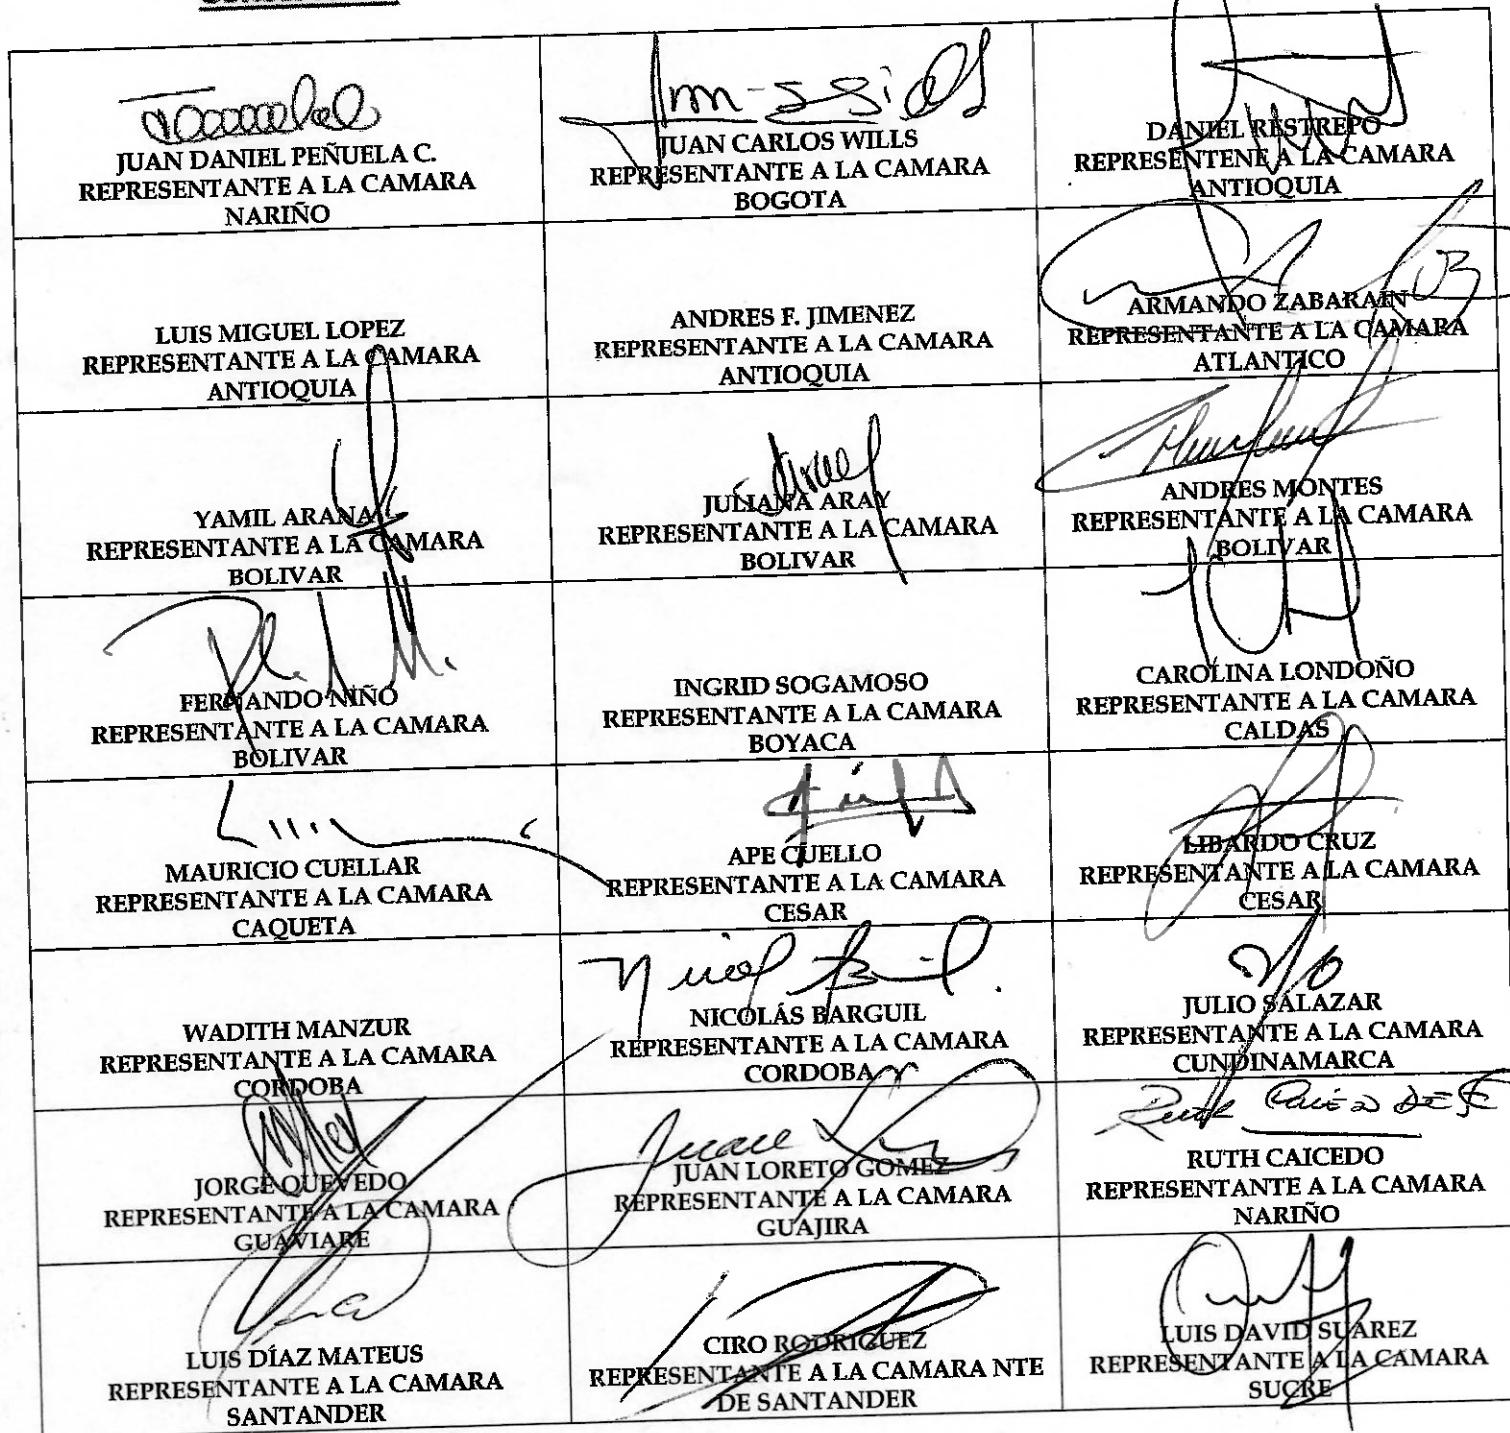 JUAN DANIEL PEÑUELA C.
REPRESENTANTE A LA CAMARA
NARIÑO
JUAN CARLOS WILLS
REPRESENTANTE A LA CAMARA
BOGOTA
DANIEL RESTREPO
REPRESENTENE A LA CAMARA
ANTIOQUIA
LUIS MIGUEL LOPEZ
REPRESENTANTE A LA CAMARA
ANTIOQUIA
ANDRES F. JIMENEZ
REPRESENTANTE A LA CAMARA
ANTIOQUIA
ARMANDO ZABARAIN
REPRESENTANTE A LA CAMARA
ATLANTICO
YAMIL ARANA
REPRESENTANTE A LA CAMARA
BOLIVAR
JULIANA ARAY
REPRESENTANTE A LA CAMARA
BOLIVAR
ANDRES MONTES
REPRESENTANTE A LA CAMARA
BOLIVAR
FERNANDO NIÑO
REPRESENTANTE A LA CAMARA
BOLIVAR
INGRID SOGAMOSO
REPRESENTANTE A LA CAMARA
BOYACA
CAROLINA LONDOÑO
REPRESENTANTE A LA CAMARA
CALDAS
MAURICIO CUELLAR
REPRESENTANTE A LA CAMARA
CAQUETA
APE CUELLO
REPRESENTANTE A LA CAMARA
CESAR
LIBARDO CRUZ
REPRESENTANTE A LA CAMARA
CESAR
WADITH MANZUR
REPRESENTANTE A LA CAMARA
CORDOBA
NICOLÁS BARGUIL
REPRESENTANTE A LA CAMARA
CORDOBA
JULIO SALAZAR
REPRESENTANTE A LA CAMARA
CUNDINAMARCA
JORGE QUEVEDO
REPRESENTANTE A LA CAMARA
GUAVIARE
JUAN LORETO GOMEZ
REPRESENTANTE A LA CAMARA
GUAJIRA
RUTH CAICEDO
REPRESENTANTE A LA CAMARA
NARIÑO
LUIS DÍAZ MATEUS
REPRESENTANTE A LA CAMARA
SANTANDER
CIRO RODRIGUEZ
REPRESENTANTE A LA CAMARA NTE
DE SANTANDER
LUIS DAVID SUAREZ
REPRESENTANTE A LA CAMARA
SUCRE